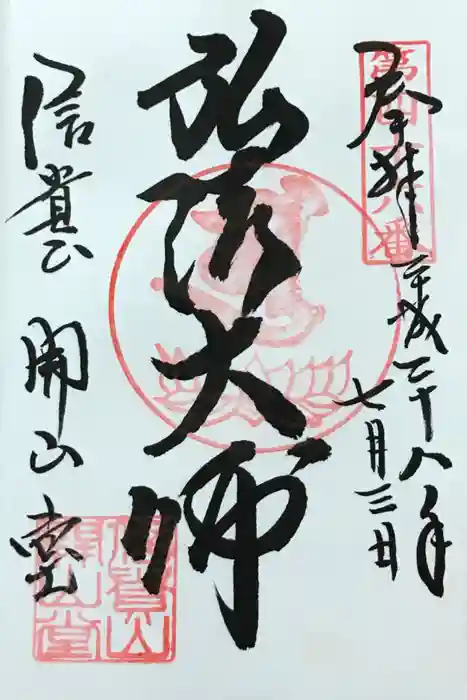 奉拝
平成二十八年
七月三日
弘法大師
信貴山 開山堂
信貴山
開山堂